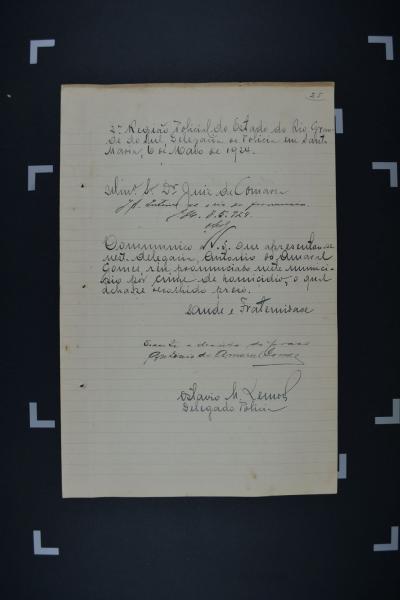 25
2ª Região Policial do Estado do Rio Gran-
de do Sul, Delegacia de Policia em Santa
Maria, 6 de Maio de 1929.
Illmo. Sr. Dr. Juiz de Comarca
8.5.929
Communico a V. S. que apresentou-se
nesta delegacia, Antonio do Amaral
Gomes, reu pronunciado neste munici-
pio por crime de homicidio, o qual
achase recolhido preso.
Saude e Fraternidade
Antonio do Amaral Gomes
Octavio M. Lemos
Delegado Policia